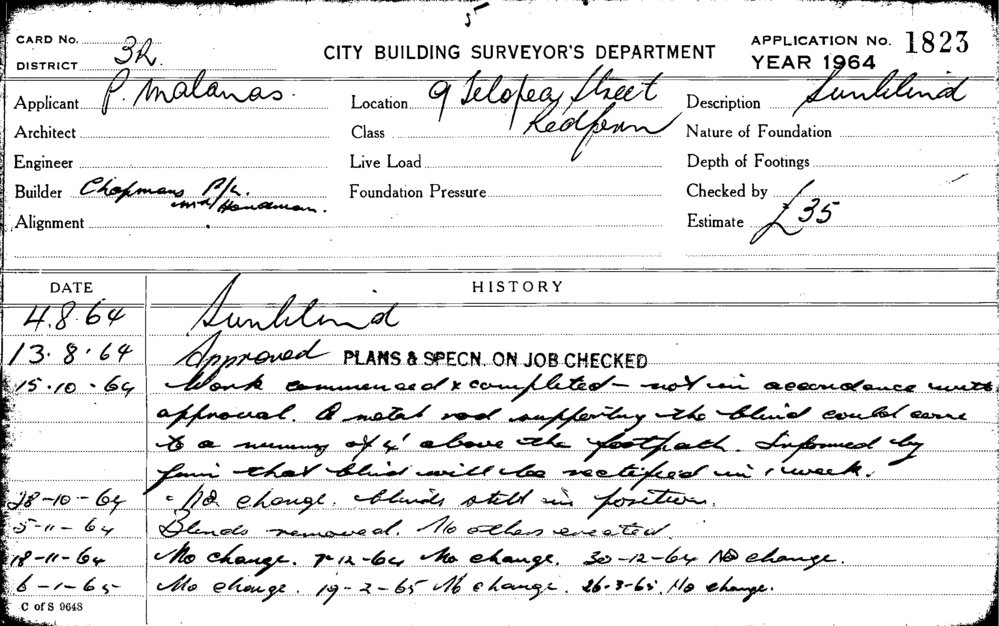 5
CARD No.
DISTRICT 3R.
CITY BUILDING SURVEYOR'S DEPARTMENT
APPLICATION No. 1823
YEAR 1964
Applicant P. Malanas.
Location 9 Telopea Street
Redfern
Description Sunblind
Architect
Class
Nature of Foundation
Engineer
Live Load
Depth of Footings
Builder Chapmans P/L.
Handman.
Foundation Pressure
Checked by
Alignment
Estimate £35
DATE
HISTORY
4.8.64 Sunblind
13.8.64 Approved PLANS & SPECN. ON JOB CHECKED
15.10.64 Work commenced & completed - not in accordance with
approval. A metal rod supporting the blind could come
to a of above the footpath. Informed by
that blind will be rectified in 1 week.
28-10-64 No change. blinds still in position.
5-11-64 Blinds removed. No others erected.
18-11-64 No change. 7-12-64 No change. 30-12-64 No change.
6-1-65 No change. 19-2-65 No change. 26-3-65. No change.
C of S 9648